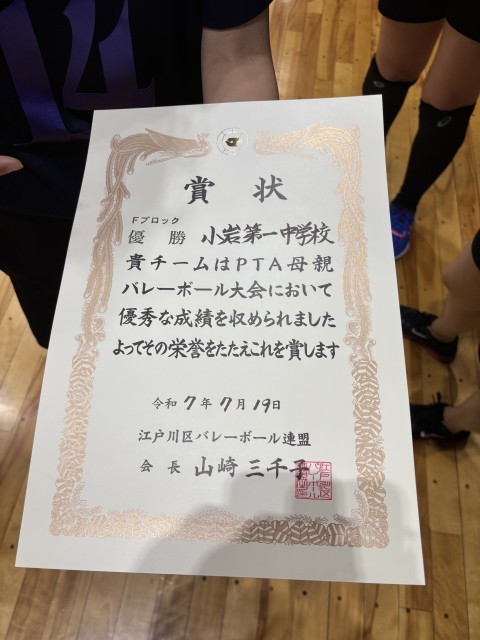 14
賞状
Fブロック
優勝 小岩第一中学校
貴チームはPTA母親
バレーボール大会において
優秀な成績を収められました
よってその栄誉をたたえこれを賞します
令和7年7月19日
江戸川区バレーボール連盟
会長 山崎三千子